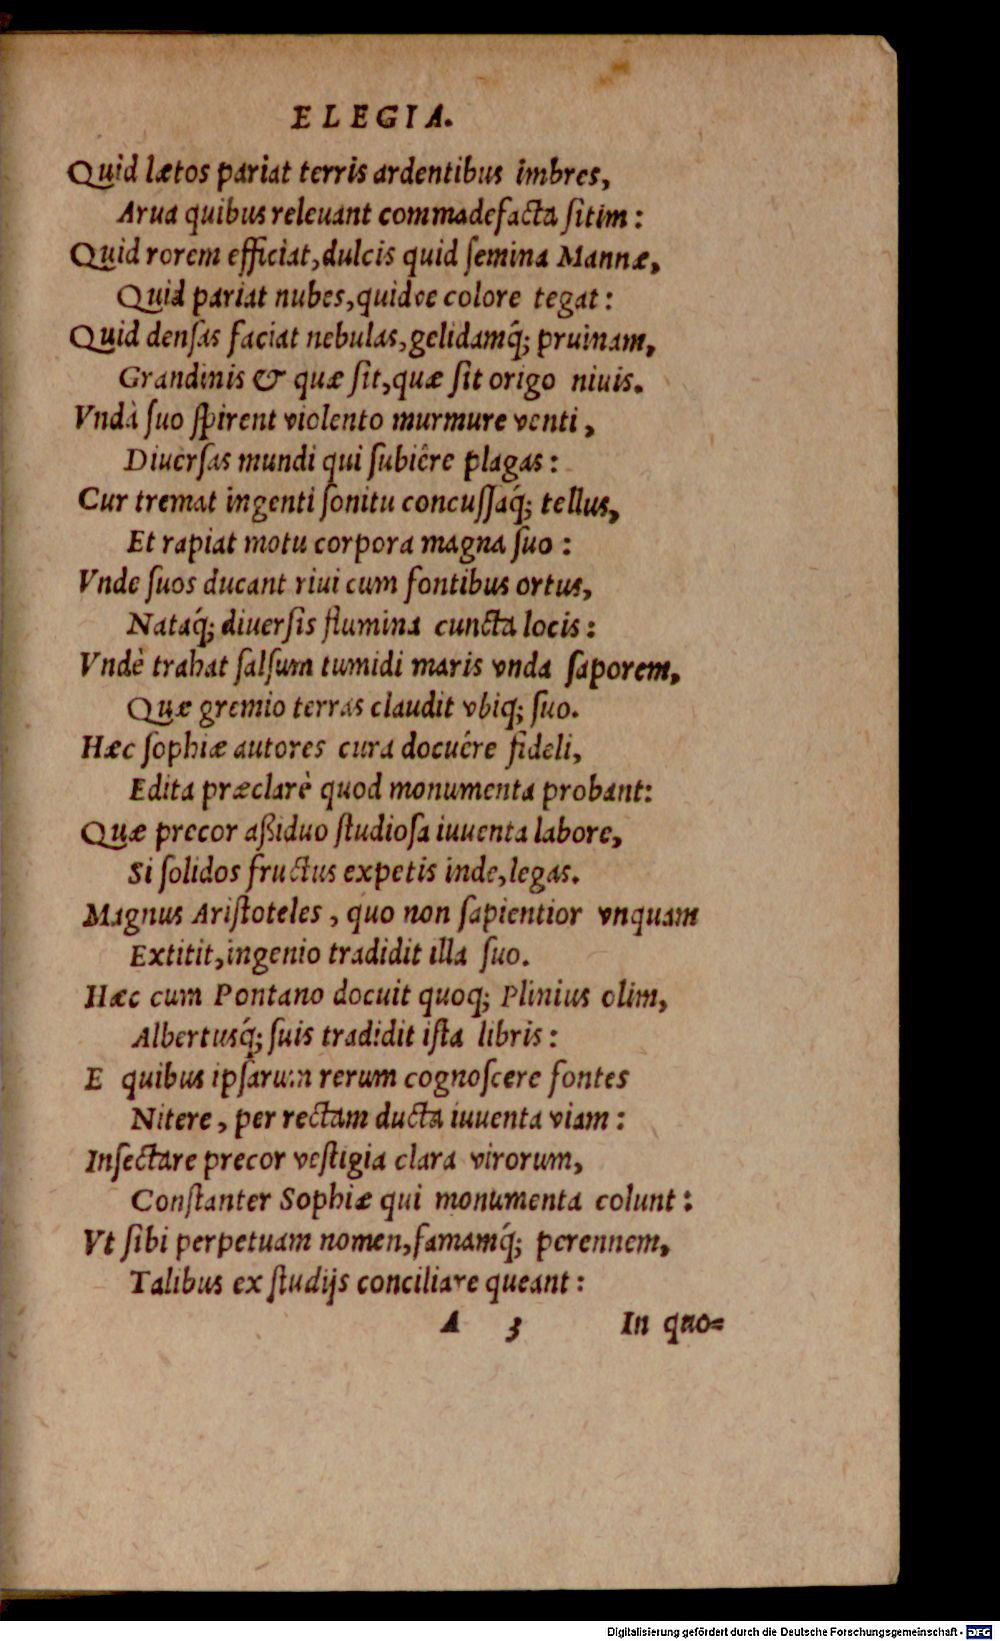 ELEGIA.
Quid lætos pariat terris ardentibus imbres,
Arua quibus releuant commadefacta ſitim:
Quid rorem efficiat, dulcis quid ſemina Mannæ,
Quid pariat nubes, quidve colore tegat:
Quid denſas faciat nebulas, gelidamq́; pruinam,
Grandinis & quæ ſit, quæ ſit origo niuis.
Vndà ſuo ſpirent violento murmure venti,
Diuerſas mundi qui ſubiêre plagas:
Cur tremat ingenti ſonitu concuſſaq́; tellus,
Et rapiat motu corpora magna ſuo:
Vnde ſuos ducant riui cum fontibus ortus,
Nataq́; diuerſis flumina cuncta locis:
Vndè trahat ſalſum tumidi maris vnda ſaporem,
Quæ gremio terras claudit vbiq; ſuo.
Hæc ſophiæ autores cura docuêre fideli,
Edita præclarè quod monumenta probant:
Quæ precor aßiduo ſtudioſa iuuenta labore,
Si ſolidos fructus expetis inde, legas.
Magnus Ariſtoteles, quo non ſapientior vnquam
Extitit, ingenio tradidit illa ſuo.
Hæc cum Pontano docuit quoq; Plinius olim,
Albertusq́; ſuis tradidit iſta libris:
E quibus ipſarum rerum cognoſcere fontes
Nitere, per rectam ducta iuuenta viam:
Inſectare precor veſtigia clara virorum,
Conſtanter Sophiæ qui monumenta colunt:
Vt ſibi perpetuam nomen, famamq́; perennem,
Talibus ex ſtudijs conciliare queant:
A 3 In quo=
Digitalisierung gefördert durch die Deutsche Forschungsgemeinschaft - DFG